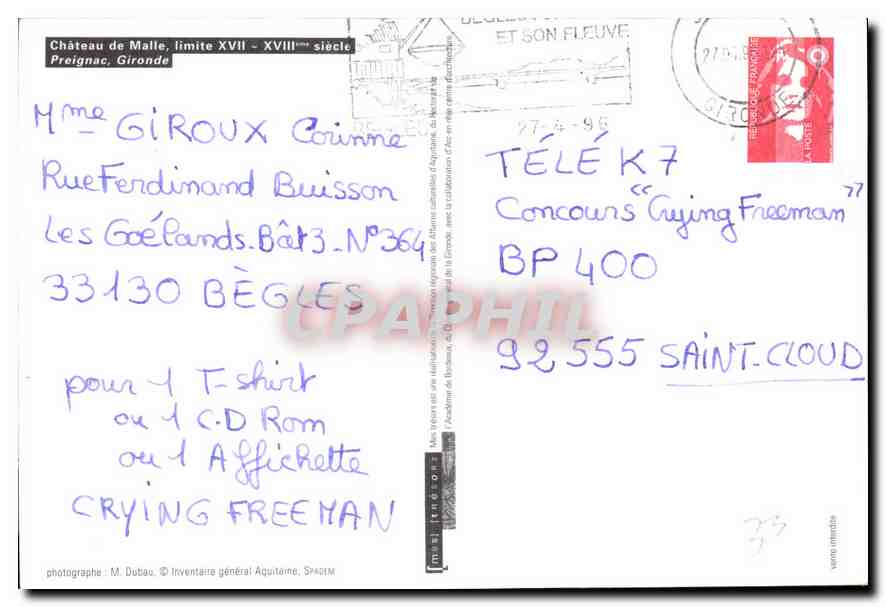 Château de Malle, limite XVII - XVIIIème siècle
Preignac, Gironde
ET SON FLEUVE
27-4-96
RÉPUBLIQUE FRANÇAISE
LA POSTE
Mme GIROUX Corinne
Rue Ferdinand Buisson
Les Goélands. Bât 3 - N° 364
33130 BÈGLES
pour 1 T-shirt
ou 1 C.D Rom
ou 1 Affichette
CRYING FREEMAN
TÉLÉ K7
Concours "Crying Freeman"
BP 400
92 555 SAINT-CLOUD
CPAPHIL
Mes trésors est une réalisation de la Direction régionale des Affaires culturelles d'Aquitaine, du Rectorat de
l'Académie de Bordeaux, du Conseil général de la Gironde, avec la collaboration d'Arc en rêve centre d'architecture
[mes] [trésors]
vente interdite
photographe : M. Dubau, © Inventaire général Aquitaine, SPADEM